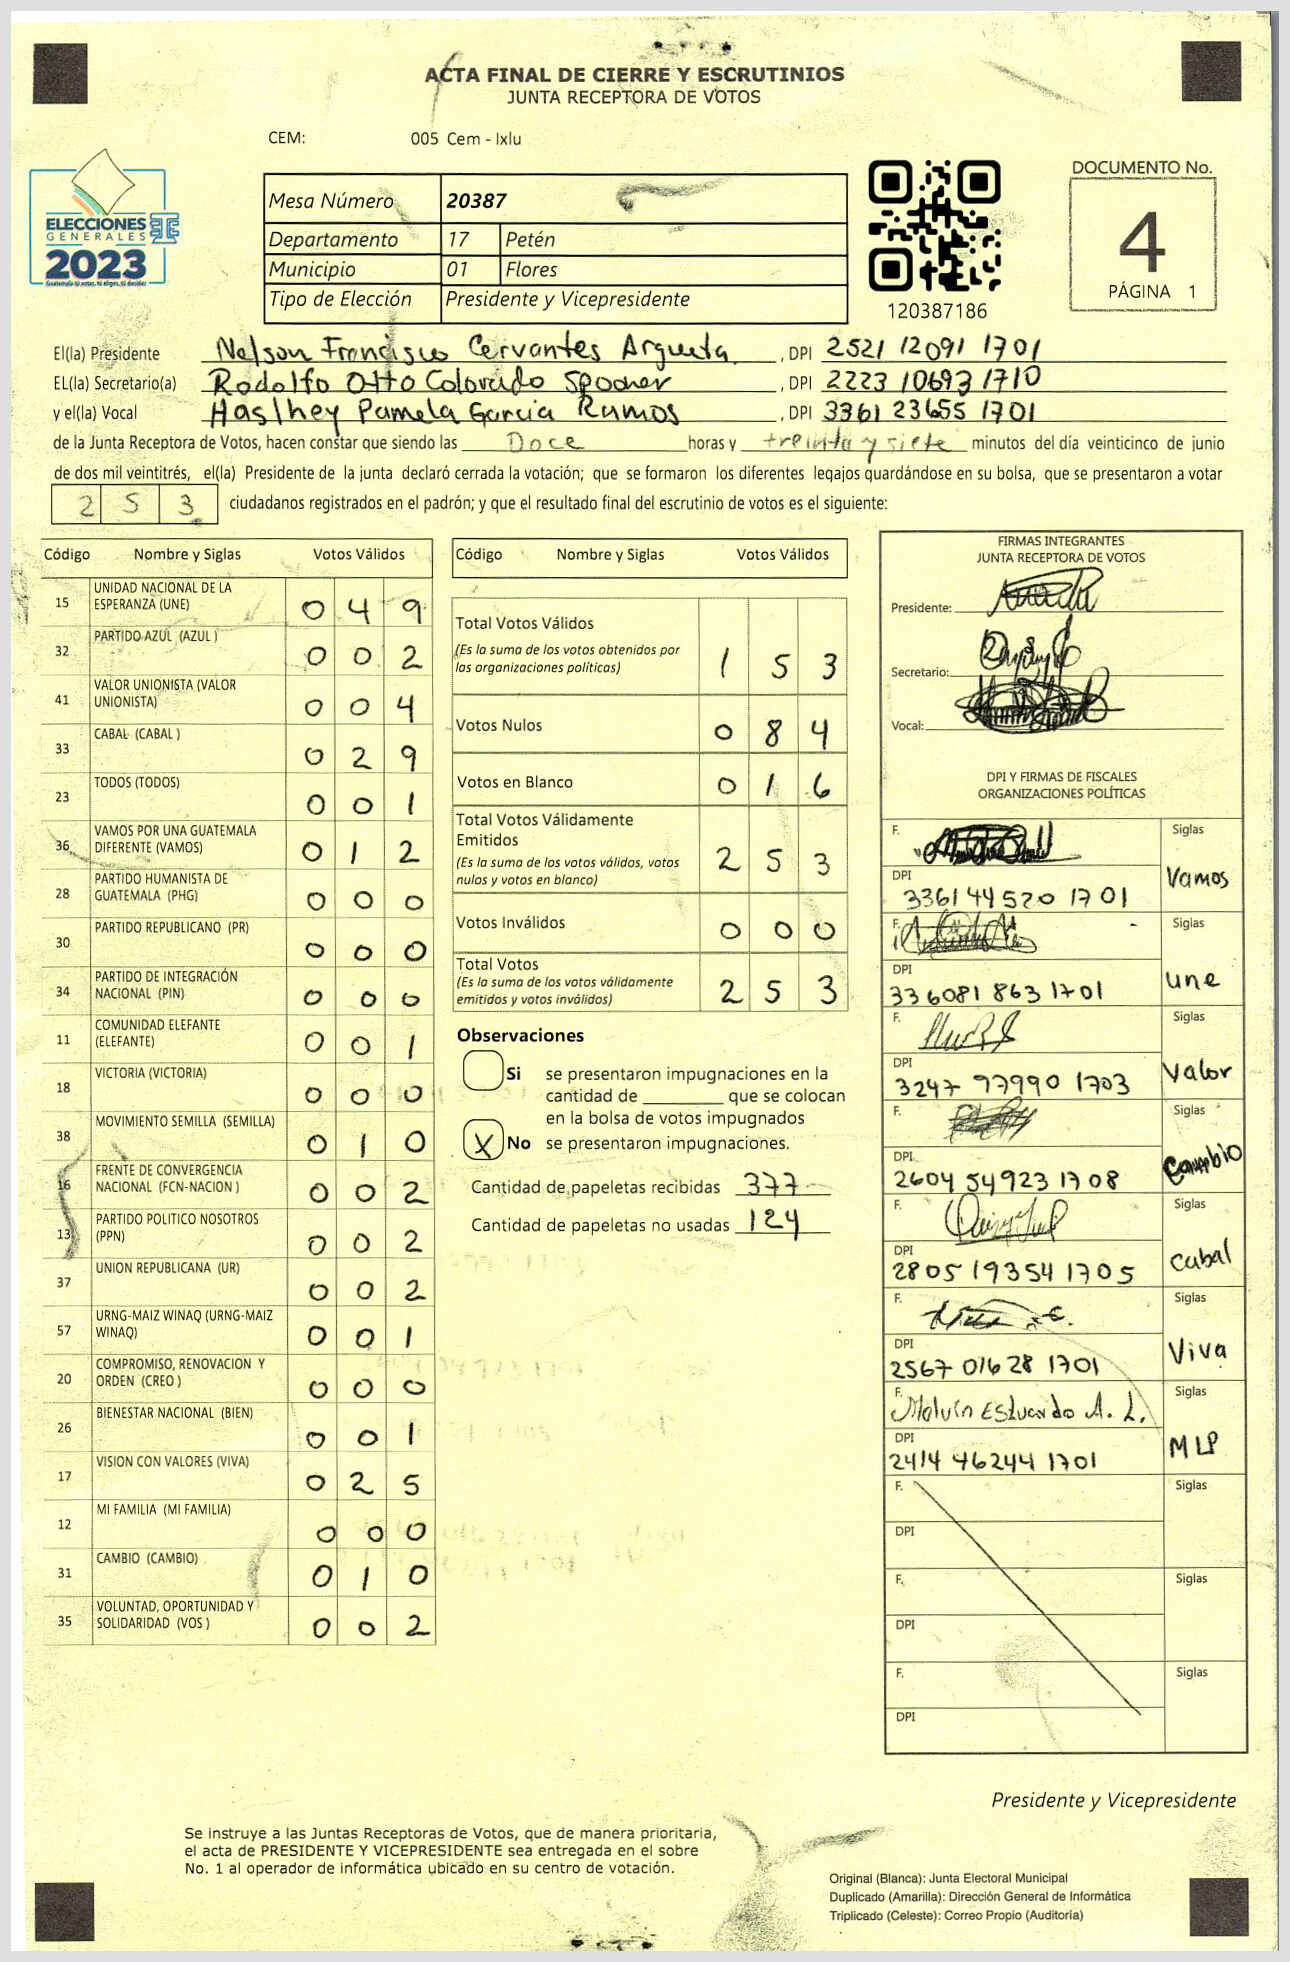 ACTA FINAL DE CIERRE Y ESCRUTINIOS
JUNTA RECEPTORA DE VOTOS
CEM: 005 Cem - Ixlu
ELECCIONES
GENERALES
2023
Guatemala tú votas, tú eliges, tú decides
Mesa Número 20387
Departamento 17 Petén
Municipio 01 Flores
Tipo de Elección Presidente y Vicepresidente
120387186
DOCUMENTO No.
4
PÁGINA 1
El(la) Presidente Nelson Francisco Cervantes Argueta, DPI 2521 12091 1701
EL(la) Secretario(a) Rodolfo Otto Colorado, DPI 2223 10693 1710
y el(la) Vocal Haslhey Pamela Garcia Ramos, DPI 3361 23655 1701
de la Junta Receptora de Votos, hacen constar que siendo las Doce horas y treinta y siete minutos del día veinticinco de junio
de dos mil veintitrés, el(la) Presidente de la junta declaró cerrada la votación; que se formaron los diferentes legajos guardándose en su bolsa, que se presentaron a votar
253 ciudadanos registrados en el padrón; y que el resultado final del escrutinio de votos es el siguiente:
Código Nombre y Siglas Votos Válidos
15 UNIDAD NACIONAL DE LA ESPERANZA (UNE) 049
32 PARTIDO AZUL (AZUL ) 002
41 VALOR UNIONISTA (VALOR UNIONISTA) 004
33 CABAL (CABAL ) 029
23 TODOS (TODOS) 001
36 VAMOS POR UNA GUATEMALA DIFERENTE (VAMOS) 012
28 PARTIDO HUMANISTA DE GUATEMALA (PHG) 000
30 PARTIDO REPUBLICANO (PR) 000
34 PARTIDO DE INTEGRACIÓN NACIONAL (PIN) 000
11 COMUNIDAD ELEFANTE (ELEFANTE) 001
18 VICTORIA (VICTORIA) 000
38 MOVIMIENTO SEMILLA (SEMILLA) 010
16 FRENTE DE CONVERGENCIA NACIONAL (FCN-NACION ) 002
13 PARTIDO POLITICO NOSOTROS (PPN) 002
37 UNION REPUBLICANA (UR) 002
57 URNG-MAIZ WINAQ (URNG-MAIZ WINAQ) 001
20 COMPROMISO, RENOVACION Y ORDEN (CREO ) 000
26 BIENESTAR NACIONAL (BIEN) 001
17 VISION CON VALORES (VIVA) 025
12 MI FAMILIA (MI FAMILIA) 000
31 CAMBIO (CAMBIO) 010
35 VOLUNTAD, OPORTUNIDAD Y SOLIDARIDAD (VOS ) 002
Código Nombre y Siglas Votos Válidos
Total Votos Válidos 153
(Es la suma de los votos obtenidos por
las organizaciones políticas)
Votos Nulos 084
Votos en Blanco 016
Total Votos Válidamente
Emitidos 253
(Es la suma de los votos válidos, votos
nulos y votos en blanco)
Votos Inválidos 000
Total Votos 253
(Es la suma de los votos válidamente
emitidos y votos inválidos)
Observaciones
Si se presentaron impugnaciones en la
cantidad de ________ que se colocan
en la bolsa de votos impugnados
X No se presentaron impugnaciones.
Cantidad de papeletas recibidas 377
Cantidad de papeletas no usadas 124
FIRMAS INTEGRANTES
JUNTA RECEPTORA DE VOTOS
Presidente:
Secretario:
Vocal:
DPI Y FIRMAS DE FISCALES
ORGANIZACIONES POLÍTICAS
F. Siglas
DPI 3361 44520 1701 Vamos
F. Siglas
DPI 336081 863 1701 Une
F. Siglas
DPI 3247 97990 1703 Valor
F. Siglas
DPI 2604 54923 1708 Cambio
F. Siglas
DPI 2805 19354 1705 Cabal
F. Siglas
DPI 2567 01628 1701 Viva
F. Melvin Estuardo A. L. Siglas
DPI 2414 46244 1701 MLP
F. Siglas
DPI
F. Siglas
DPI
F. Siglas
DPI
Presidente y Vicepresidente
Se instruye a las Juntas Receptoras de Votos, que de manera prioritaria,
el acta de PRESIDENTE Y VICEPRESIDENTE sea entregada en el sobre
No. 1 al operador de informática ubicado en su centro de votación.
Original (Blanca): Junta Electoral Municipal
Duplicado (Amarilla): Dirección General de Informática
Triplicado (Celeste): Correo Propio (Auditoría)